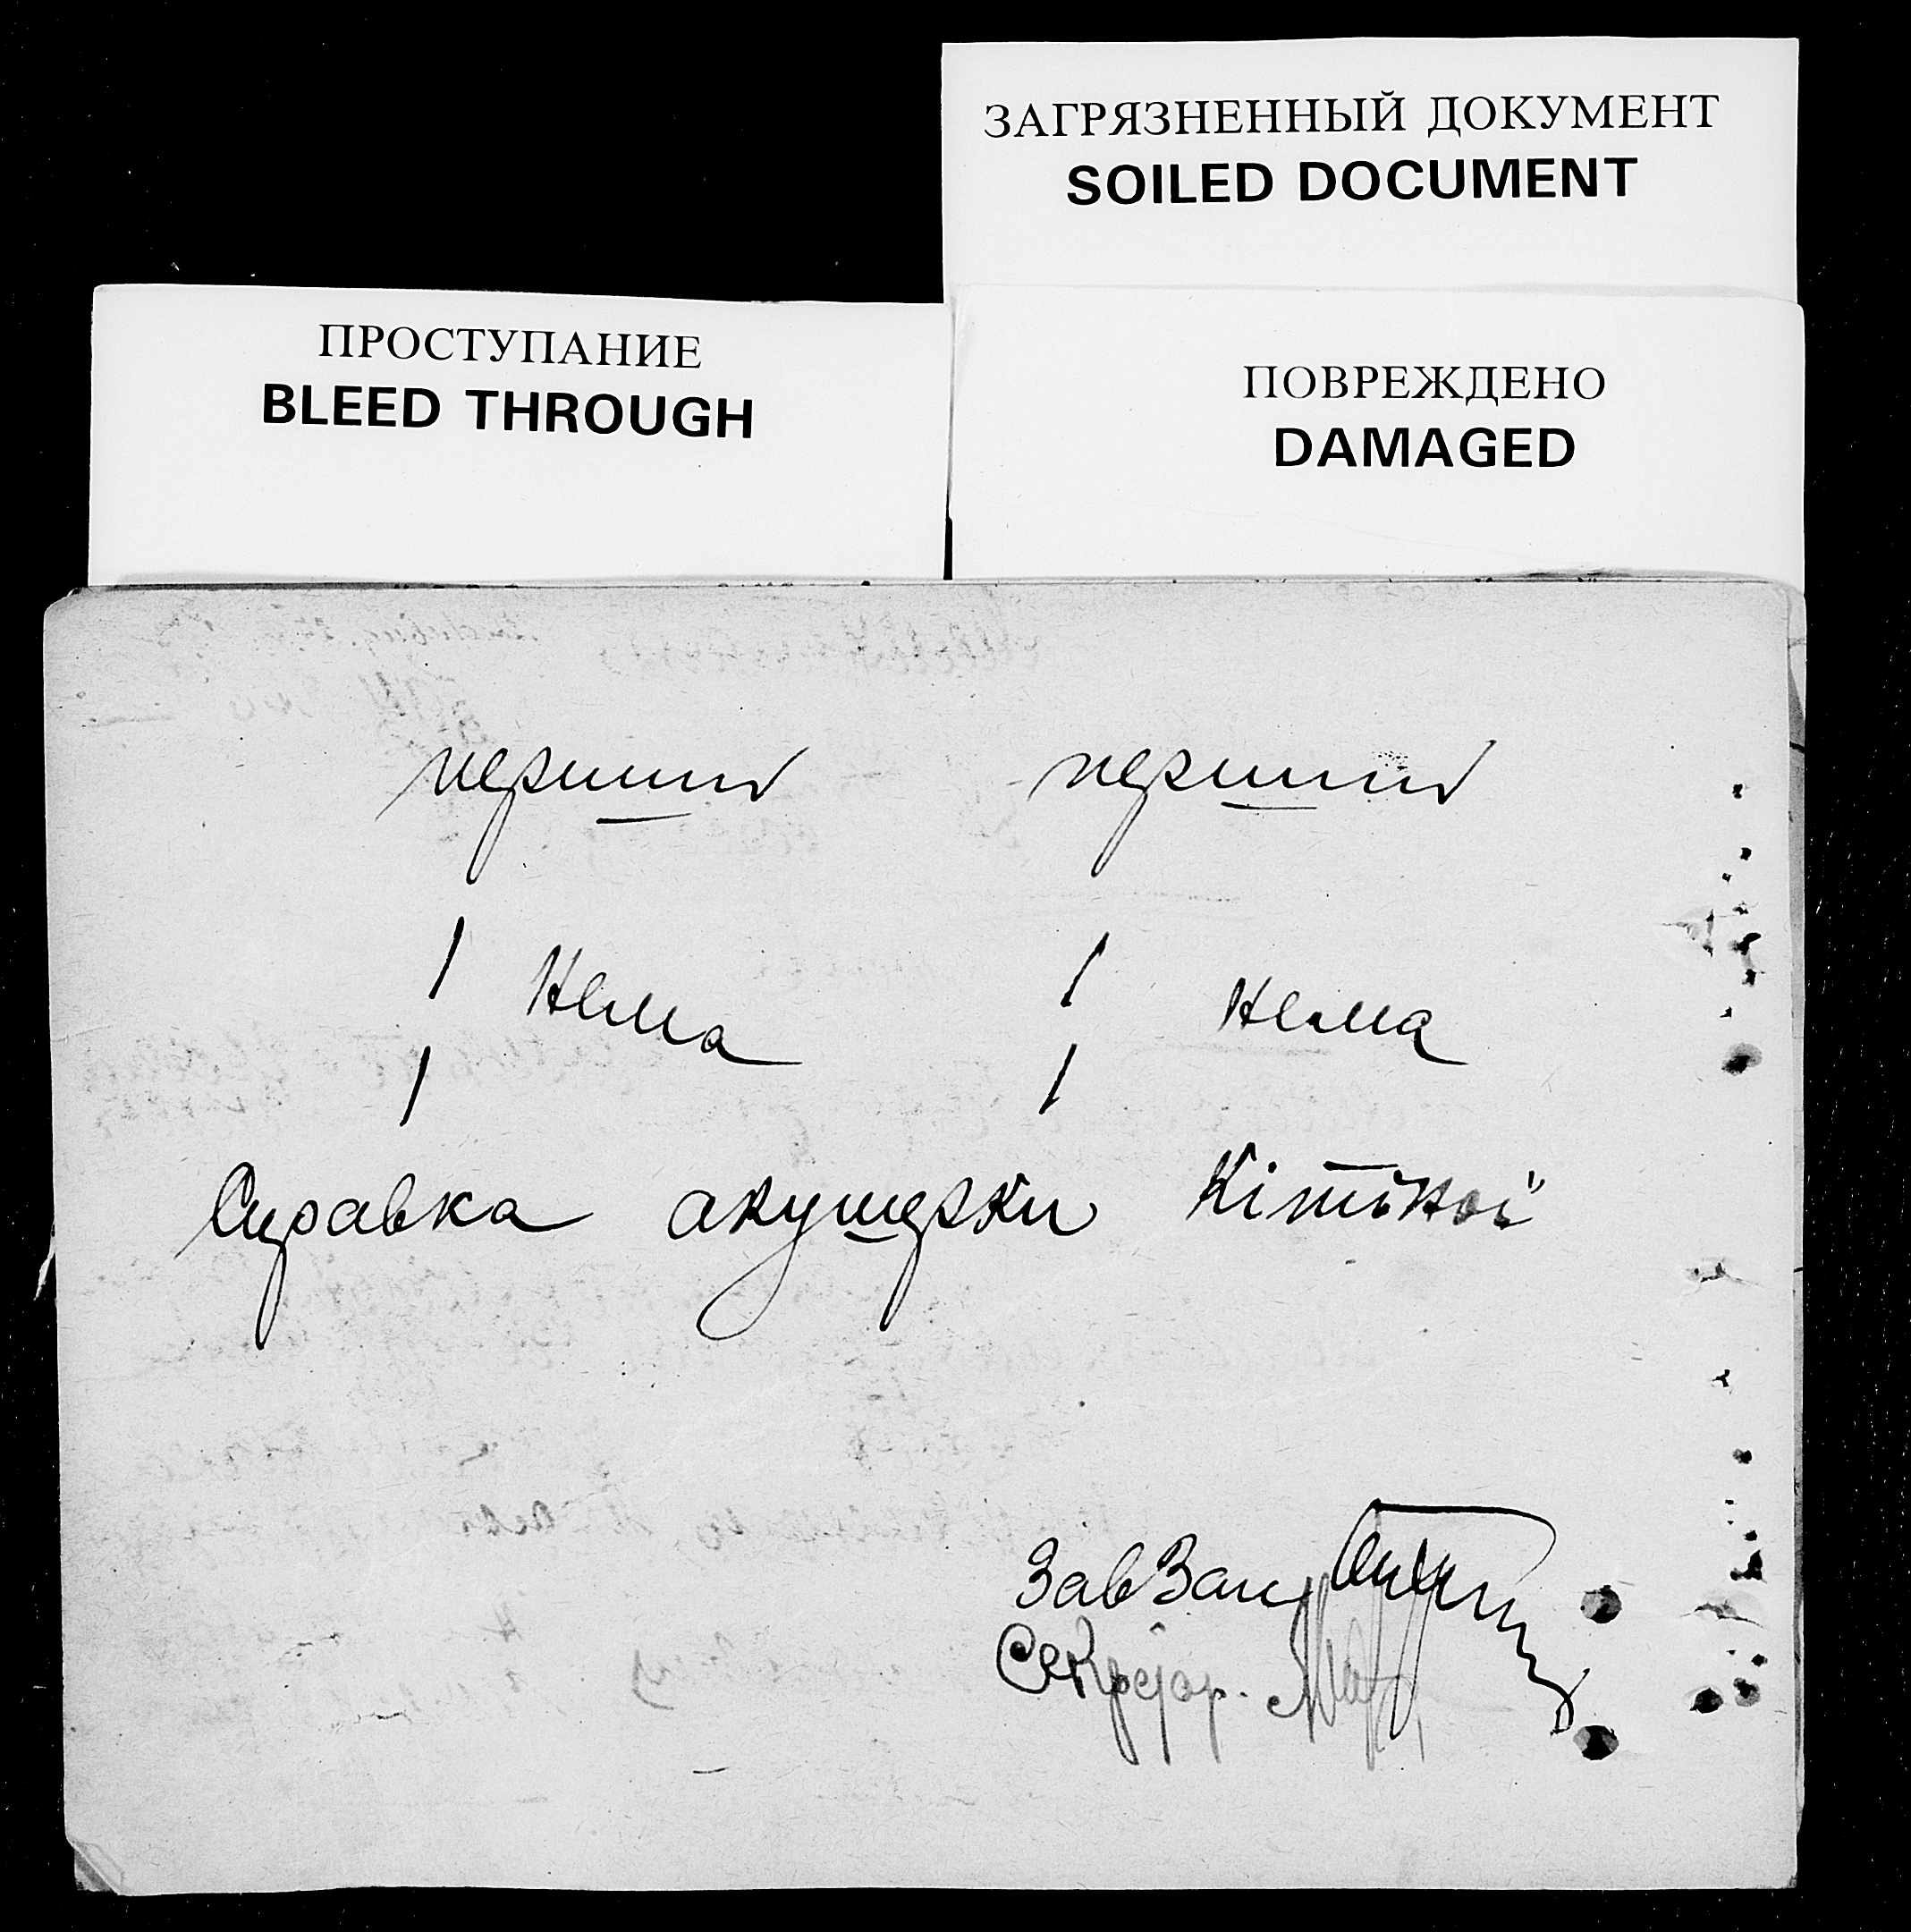 ЗАГРЯЗНЕННЫЙ ДОКУМЕНТ
SOILED DOCUMENT
ПРОСТУПАНИЕ
BLEED THROUGH
ПОВРЕЖДЕНО
DAMAGED
перший перший
Нема Нема
Справка акушерки
ЗавЗаг
Секретар.